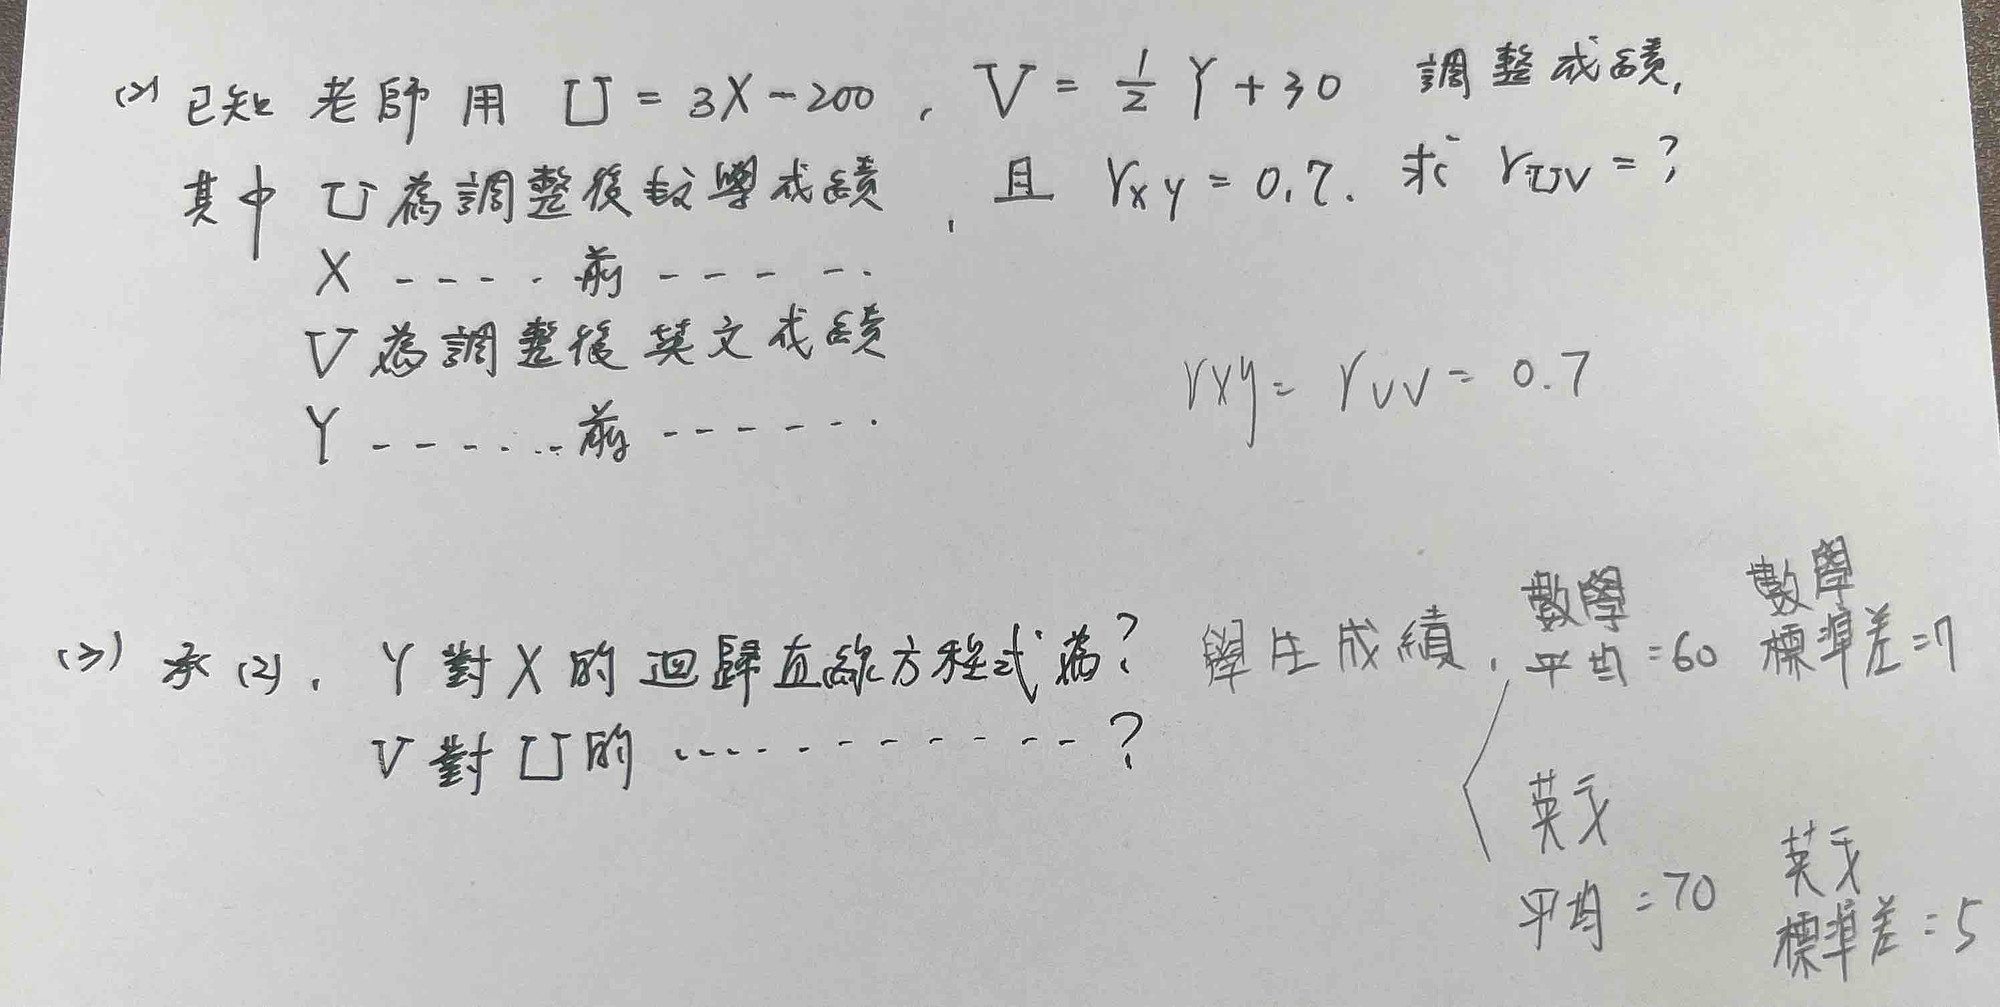 (2) 已知 老師 用 U = 3X-200, V = 1/2 Y+30 調整成績,
其中 U為調整後數學成績, 且 rxy = 0.7. 求 rUV = ?
X ---- 前 -----
V為調整後英文成績
Y ------ 前 ------
rxy = rUV = 0.7
(3) 承(2), Y對X的迴歸直線方程式為?
V對U的 ------------?
學生成績,
數學
平均 = 60
數學
標準差 = 7
英文
平均 = 70
英文
標準差 = 5